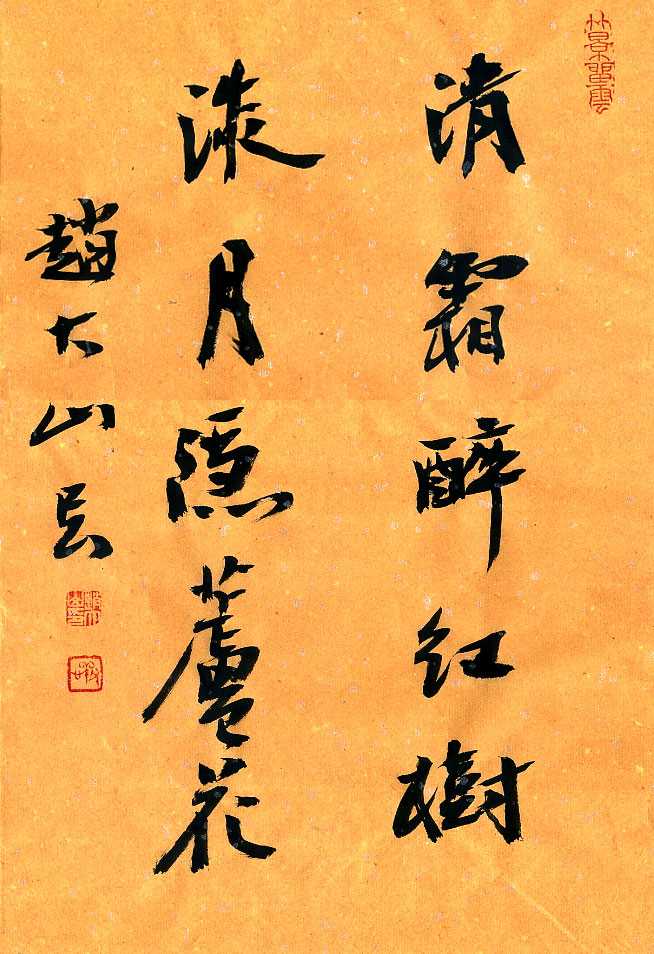 清霜醉紅樹
淡月隱蘆花
趙大山書